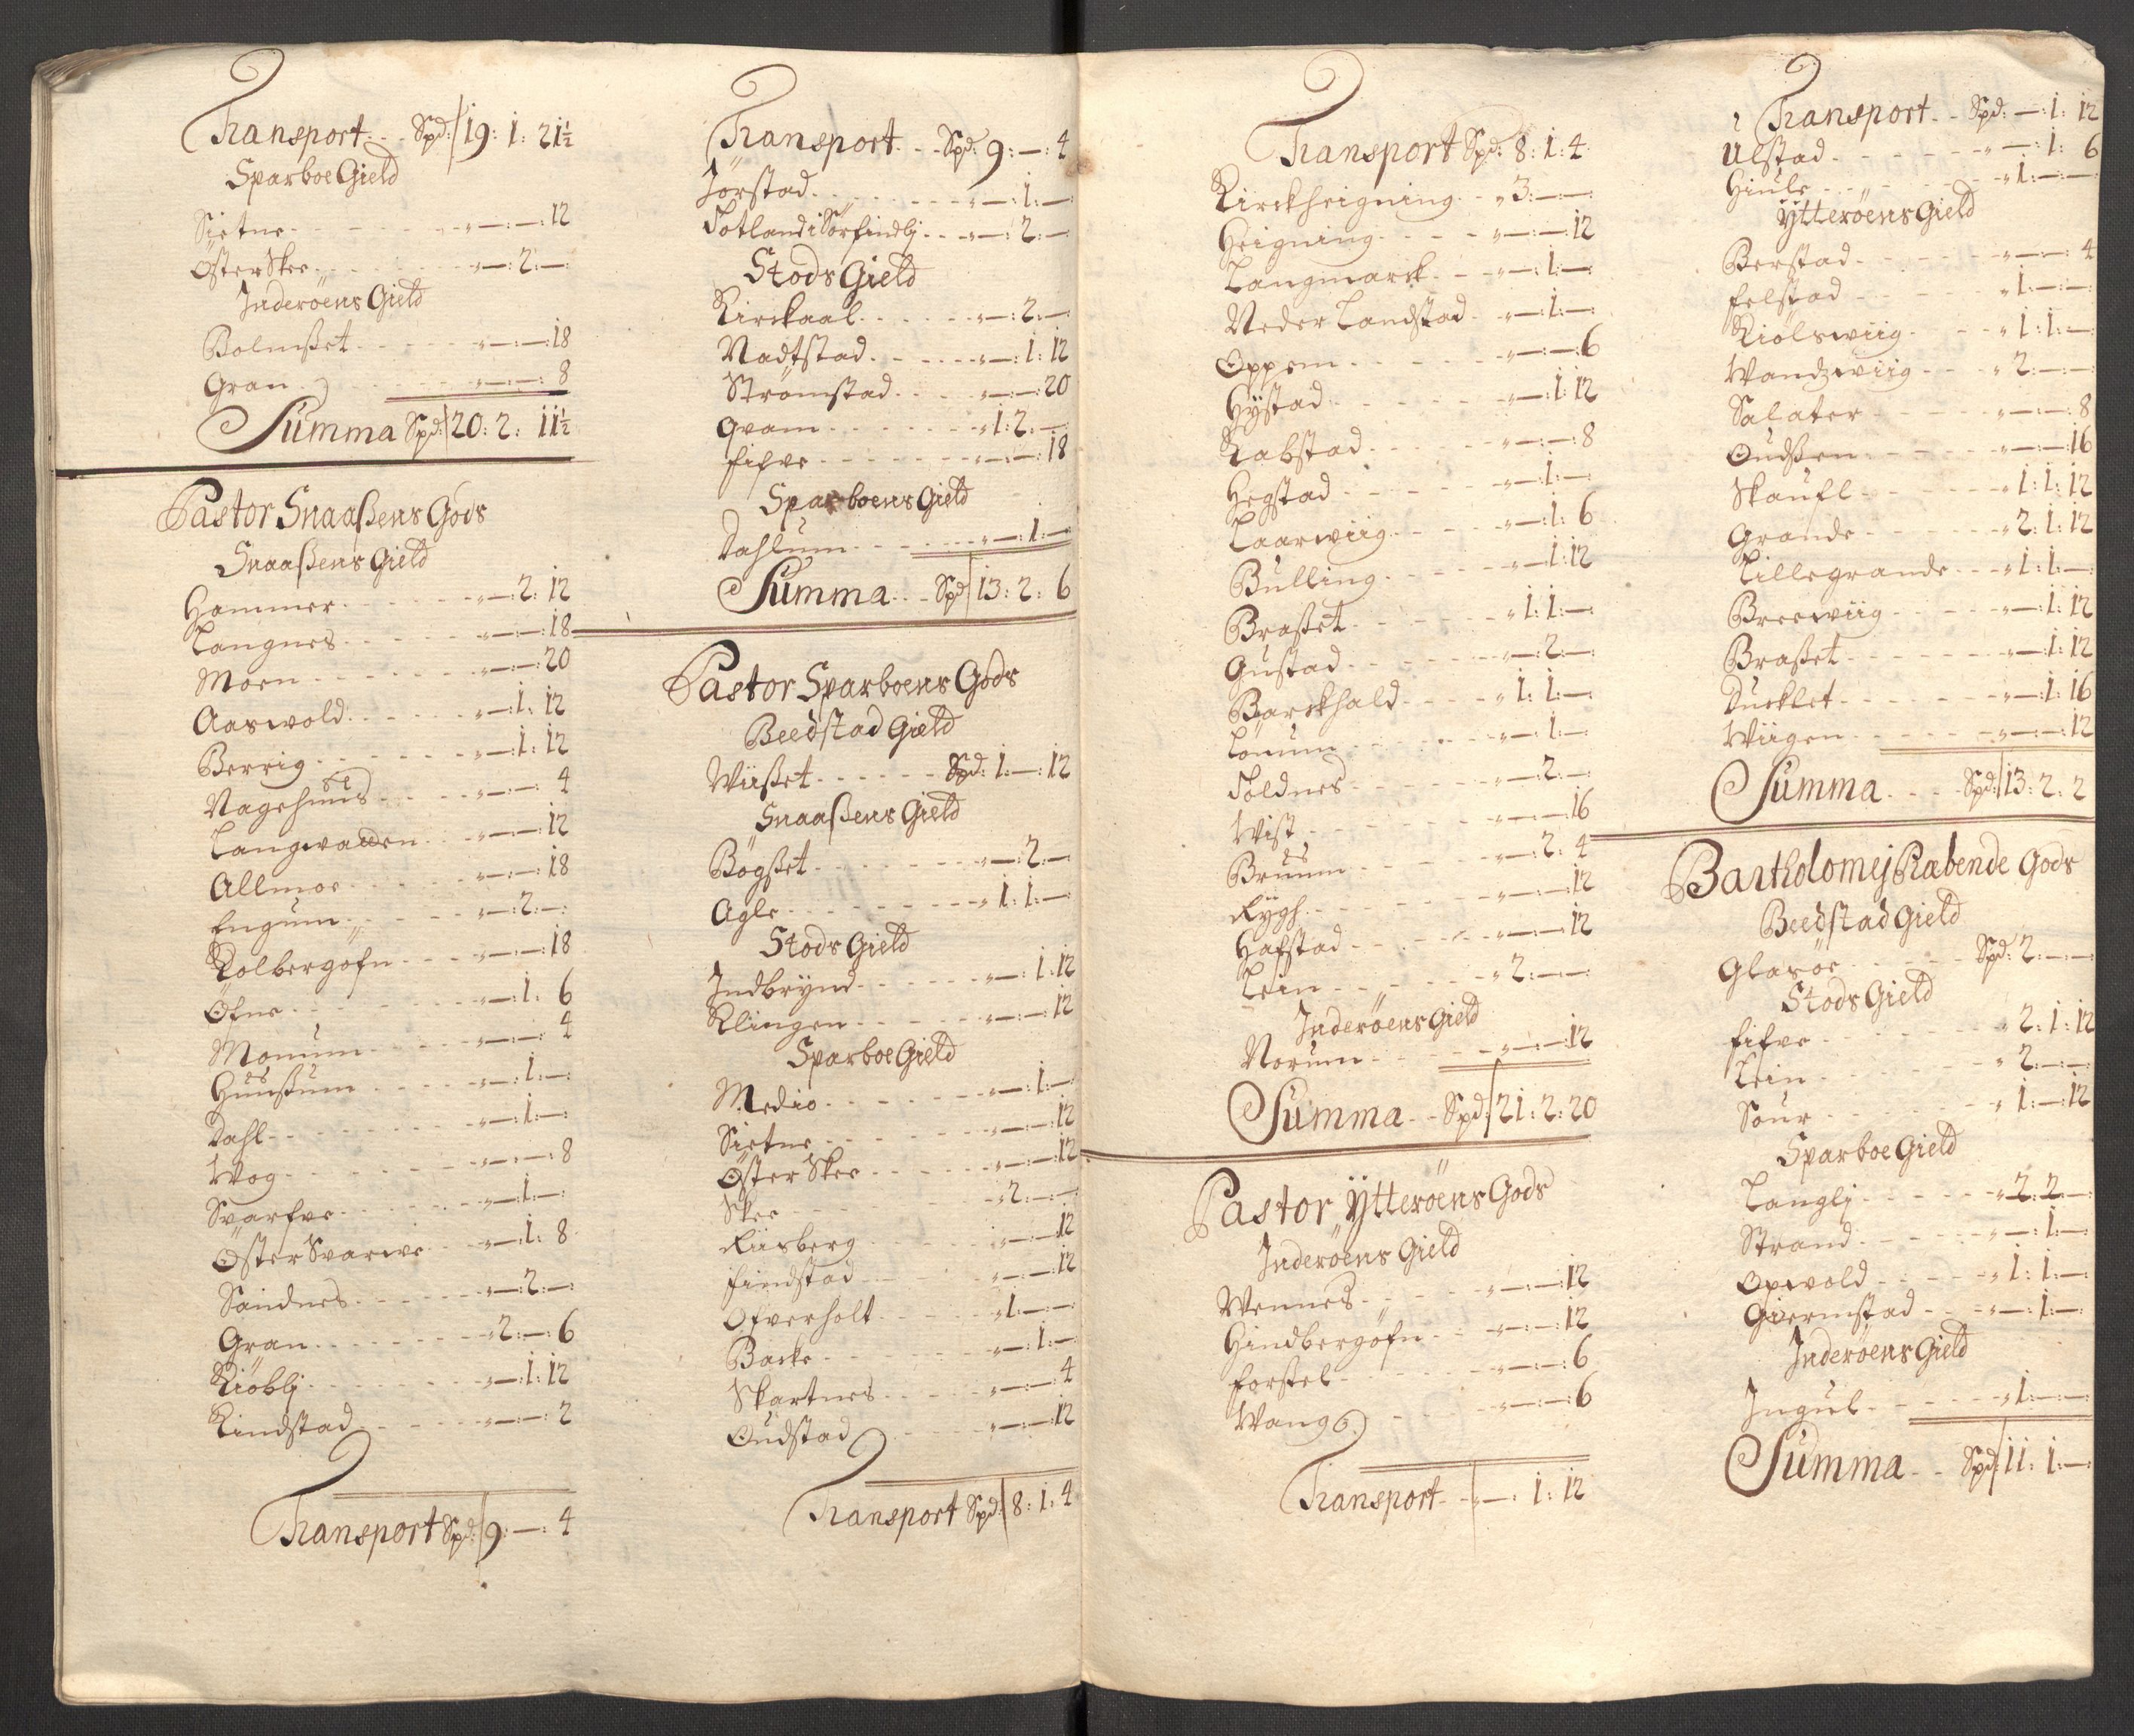 Transport - - Spd: 19: 1: 21½
Sparboe Gield
Sietne - - - " —:—: 12
Öster Skee - - - " —: 2:—
Inderöens Gield
Bolmßet - - - " —:—: 18
Gran - - - " —:—: 8
Summa Spd: 20: 2: 11½
Pastor Snaaßens Gods
Snaaßens Gield
Hammer - - - " —: 2: 12
Langnes - - - " —:—: 18
Moen - - - " —:—: 20
Aaswold - - - " —: 1: 12
Berrig - - - " —: 1: 12
Nagehuus - - - " —:—: 4
Langwaden - - - " —:—: 12
Allmoe - - - " —:—: 18
Engum - - - " —: 2:—
Kolbergöfn - - - " —:—: 18
Öfne - - - " —: 1: 6
Monum - - - " —:—: 4
Hunßum - - - " —: 1:—
Dahl - - - " —: 1:—
Wog - - - " —:—: 8
Svarfve - - - " —: 1:—
Öster Svarwe - - - " —: 1: 8
Sandnes - - - " —: 2:—
Gran - - - " 2:—: 6
Kiöblj - - - " —: 1: 12
Kindstad - - - " —:—: 2
Transport Spd: 9:—: 4
Transport - - Spd: 9:—: 4
Jörstad - - - " —: 1:—
Totland i Sörfindlj - - - " —: 2:—
Stods Gield
Kirckaal - - - " —: 2:—
Nadtstad - - - " —: 1: 12
Strömstad - - - " —:—: 20
Qvam - - - " 1: 2:—
Fifve - - - " —:—: 18
Sparboens Gield
Dahlum - - - " —: 1:—
Summa - - Spd 13: 2: 6
Pastor Sparboens Gods
Beedstad Gield
Wiißet - - - Spd: 1:—: 12
Snaaßens Gield
Bögßet - - - " —: 2:—
Agle - - - " 1: 1:—
Stods Gield
Indbrÿnd - - - " —: 1: 12
Klingen - - - " —:—: 12
Sparboe Gield
Medio - - - " —: 1:—
Sietne - - - " —:—: 12
Öster Skee - - - " —:—: 12
Skee - - - " 2:—:—
Riisberg - - - " —:—: 12
Findstad - - - " —:—: 12
Ofverholt - - - " 1:—:—
Backe - - - " —: 1:—
Skartnes - - - " —:—: 4
Oudstad - - - " —:—: 12
Transport Spd: 8: 1: 4
Transport Spd: 8: 1: 4
Kirckheigning - - " 3:—:—
Heigning - - - " —:—: 12
Langmarck - - - " —: 1:—
Neder Landstad - - " —: 1:—
Oppem - - - " —:—: 6
Hÿstad - - - " —: 1: 12
Rabstad - - - " —:—: 8
Hegstad - - - " —: 1:—
Laarwiig - - - " —: 1: 6
Bulling - - - " —: 1: 12
Braßet - - - " 1: 1:—
Gustad - - - " —: 2:—
Barckhald - - - " 1: 1:—
Lönum - - - " —: 1:—
Toldnes - - - " —: 2:—
Wist - - - " —:—: 16
Bruum - - - " —: 2: 4
Rÿgh - - - " —:—: 12
Hafstad - - - " —:—: 12
Lein - - - " 2:—:—
Inderöens Gield
Norum - - - " —:—: 12
Summa - - Spd: 21: 2: 20
Pastor Ÿtteröens Gods
Inderöens Gield
Wennes - - - " —:—: 12
Hindbergöfn - - - " —:—: 12
Forstel - - - " —:—: 6
Wang - - - " —:—: 6
Transport - - " —: 1: 12
Transport - - Spd: —: 1: 12
Ulstad - - - " —: 1: 6
Hiule - - - " 1:—:—
Ÿtteröens Gield
Berstad - - - " —:—: 4
Felstad - - - " 1:—:—
Kiölswiig - - - " 1: 1:—
Wandzwiig - - - " 2:—:—
Salater - - - " —:—: 8
Oudßen - - - " —:—: 16
Skaufl - - - " 1: 1: 12
Grande - - - " 2: 1: 12
Lillegrande - - - " 1: 1:—
Breewiig - - - " —: 1: 12
Braßet - - - " —: 1: 12
Ducklet - - - " —: 1: 16
Wiigen - - - " —:—: 12
Summa - - Spd: 13: 2: 2
Bartholomej Præbende Gods
Beedstad Gield
Glasöe - - - Spd: 2:—:—
Stods Gield
Fifve - - - " 2: 1: 12
Lein - - - " 2:—:—
Sour - - - " 1:—: 12
Sparboe Gield
Langlj - - - " 2: 2:—
Strand - - - " —: 1:—
Opwold - - - " 1: 1:—
Giermstad - - - " —: 1:—
Inderöens Gield
Ingul - - - " 1:—:—
Summa - - Spd: 11: 1:—